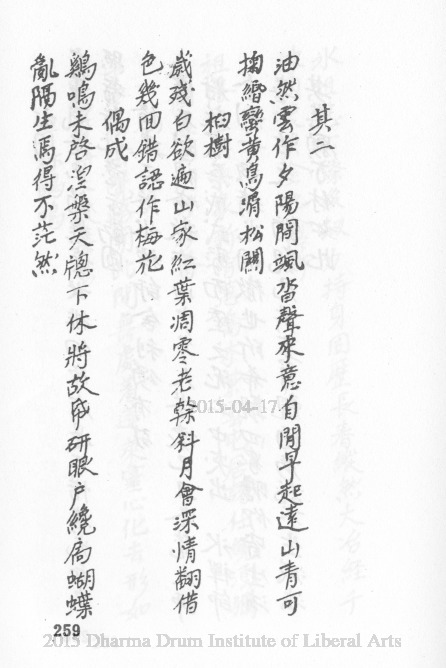 其二
油然雲作夕陽間颯沓聲來意自閒早起遠山青可
掬緡蠻黃鳥滑松關
桕樹
歲殘白欲遍山家紅葉凋零老榦斜月會深情翻借
色幾回錯認作梅花
偶成
鷄鳴未啓涅槃天牕下休將故帋研眼戶繞扃蝴蝶
亂隔生焉得不茫然
2015-04-17
259
2015 Dharma Drum Institute of Liberal Arts